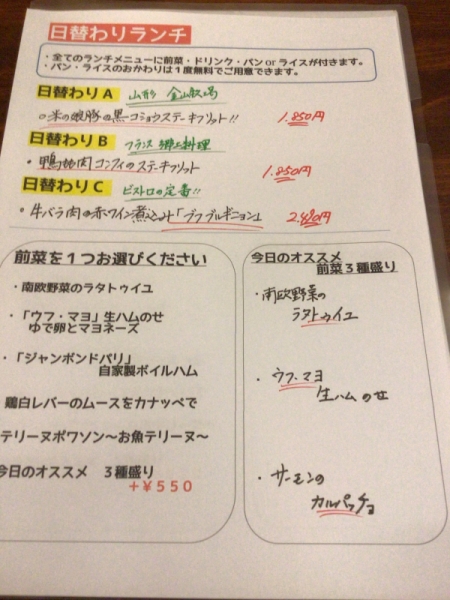 日替わりランチ
・全てのランチメニューに前菜・ドリンク・パンorライスが付きます。
・パン・ライスのおかわりは１度無料でご用意できます。
日替わりA 山形 金山牧場
○米の娘豚の黒コショウステーキフリット!! 1.850円
日替わりB フランス郷土料理
・鴨もも肉コンフィのステーキフリット 1.850円
日替わりC ビストロの定番!!
・牛バラ肉の赤ワイン煮込み「ブフブルギニョン」 2.420円
前菜を１つお選びください
・南欧野菜のラタトゥイユ
・「ウフ・マヨ」生ハムのせ
ゆで卵とマヨネーズ
・「ジャンボンドパリ」
自家製ボイルハム
鶏白レバーのムースをカナッペで
テリーヌポワソン～お魚テリーヌ～
今日のオススメ ３種盛り
＋￥５５０
今日のオススメ
前菜３種盛り
・南欧野菜の
ラタトゥイユ
・ウフ・マヨ
生ハムのせ
・サーモンの
カルパッチョ